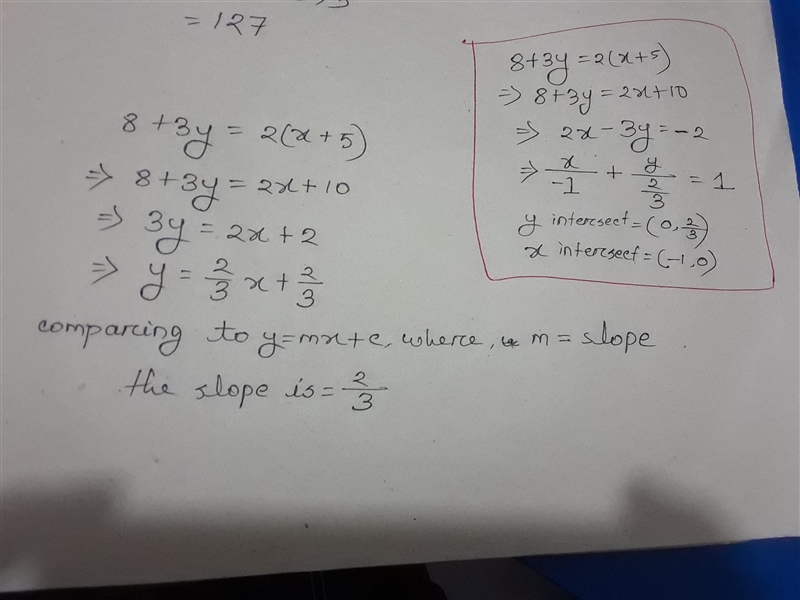 = 127
8 + 3y = 2(x + 5)
⇒ 8 + 3y = 2x + 10
⇒ 3y = 2x + 2
⇒ y = 2/3 x + 2/3
comparing to y = mx + c, where, m = slope
the slope is = 2/3
8 + 3y = 2(x + 5)
⇒ 8 + 3y = 2x + 10
⇒ 2x - 3y = -2
⇒ x/-1 + y/(2/3) = 1
y intersect = (0, 2/3)
x intersect = (-1, 0)